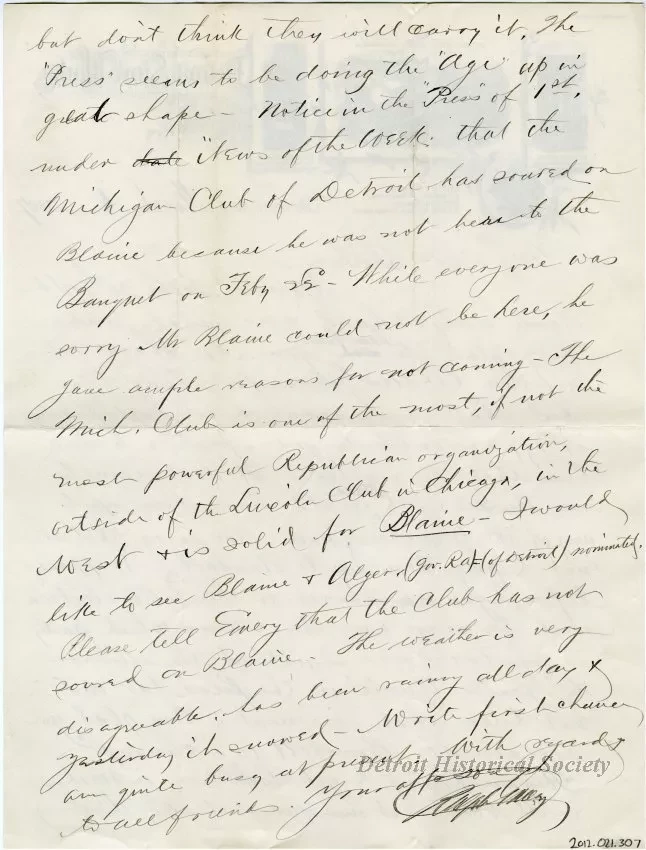 but don't think they will carry it. The
"Press" seems to be doing the "Age" up in
great shape - Notice in the "Press" of 1st,
under date "News of the Week." that the
Michigan Club of Detroit has soured on
Blaine because he was not here to the
Banquet on Feby 22 - While everyone was
sorry Mr Blaine could not be here, he
gave ample reasons for not coming - The
Mich. Club is one of the most, if not the
most powerful Republican organization,
outside of the Lincoln Club in Chicago, in the
West & is solid for Blaine - I would
like to see Blaine & Alger, (Gov. RA) (of Detroit) nominated.
Please tell Emery that the Club has not
soured on Blaine. The weather is very
disagreeable. has been rainy all day &
yesterday it snowed - Write first chance
am quite busy at present. With regards
to all friends. Your
Ralph
Detroit Historical Society
2012.021.307